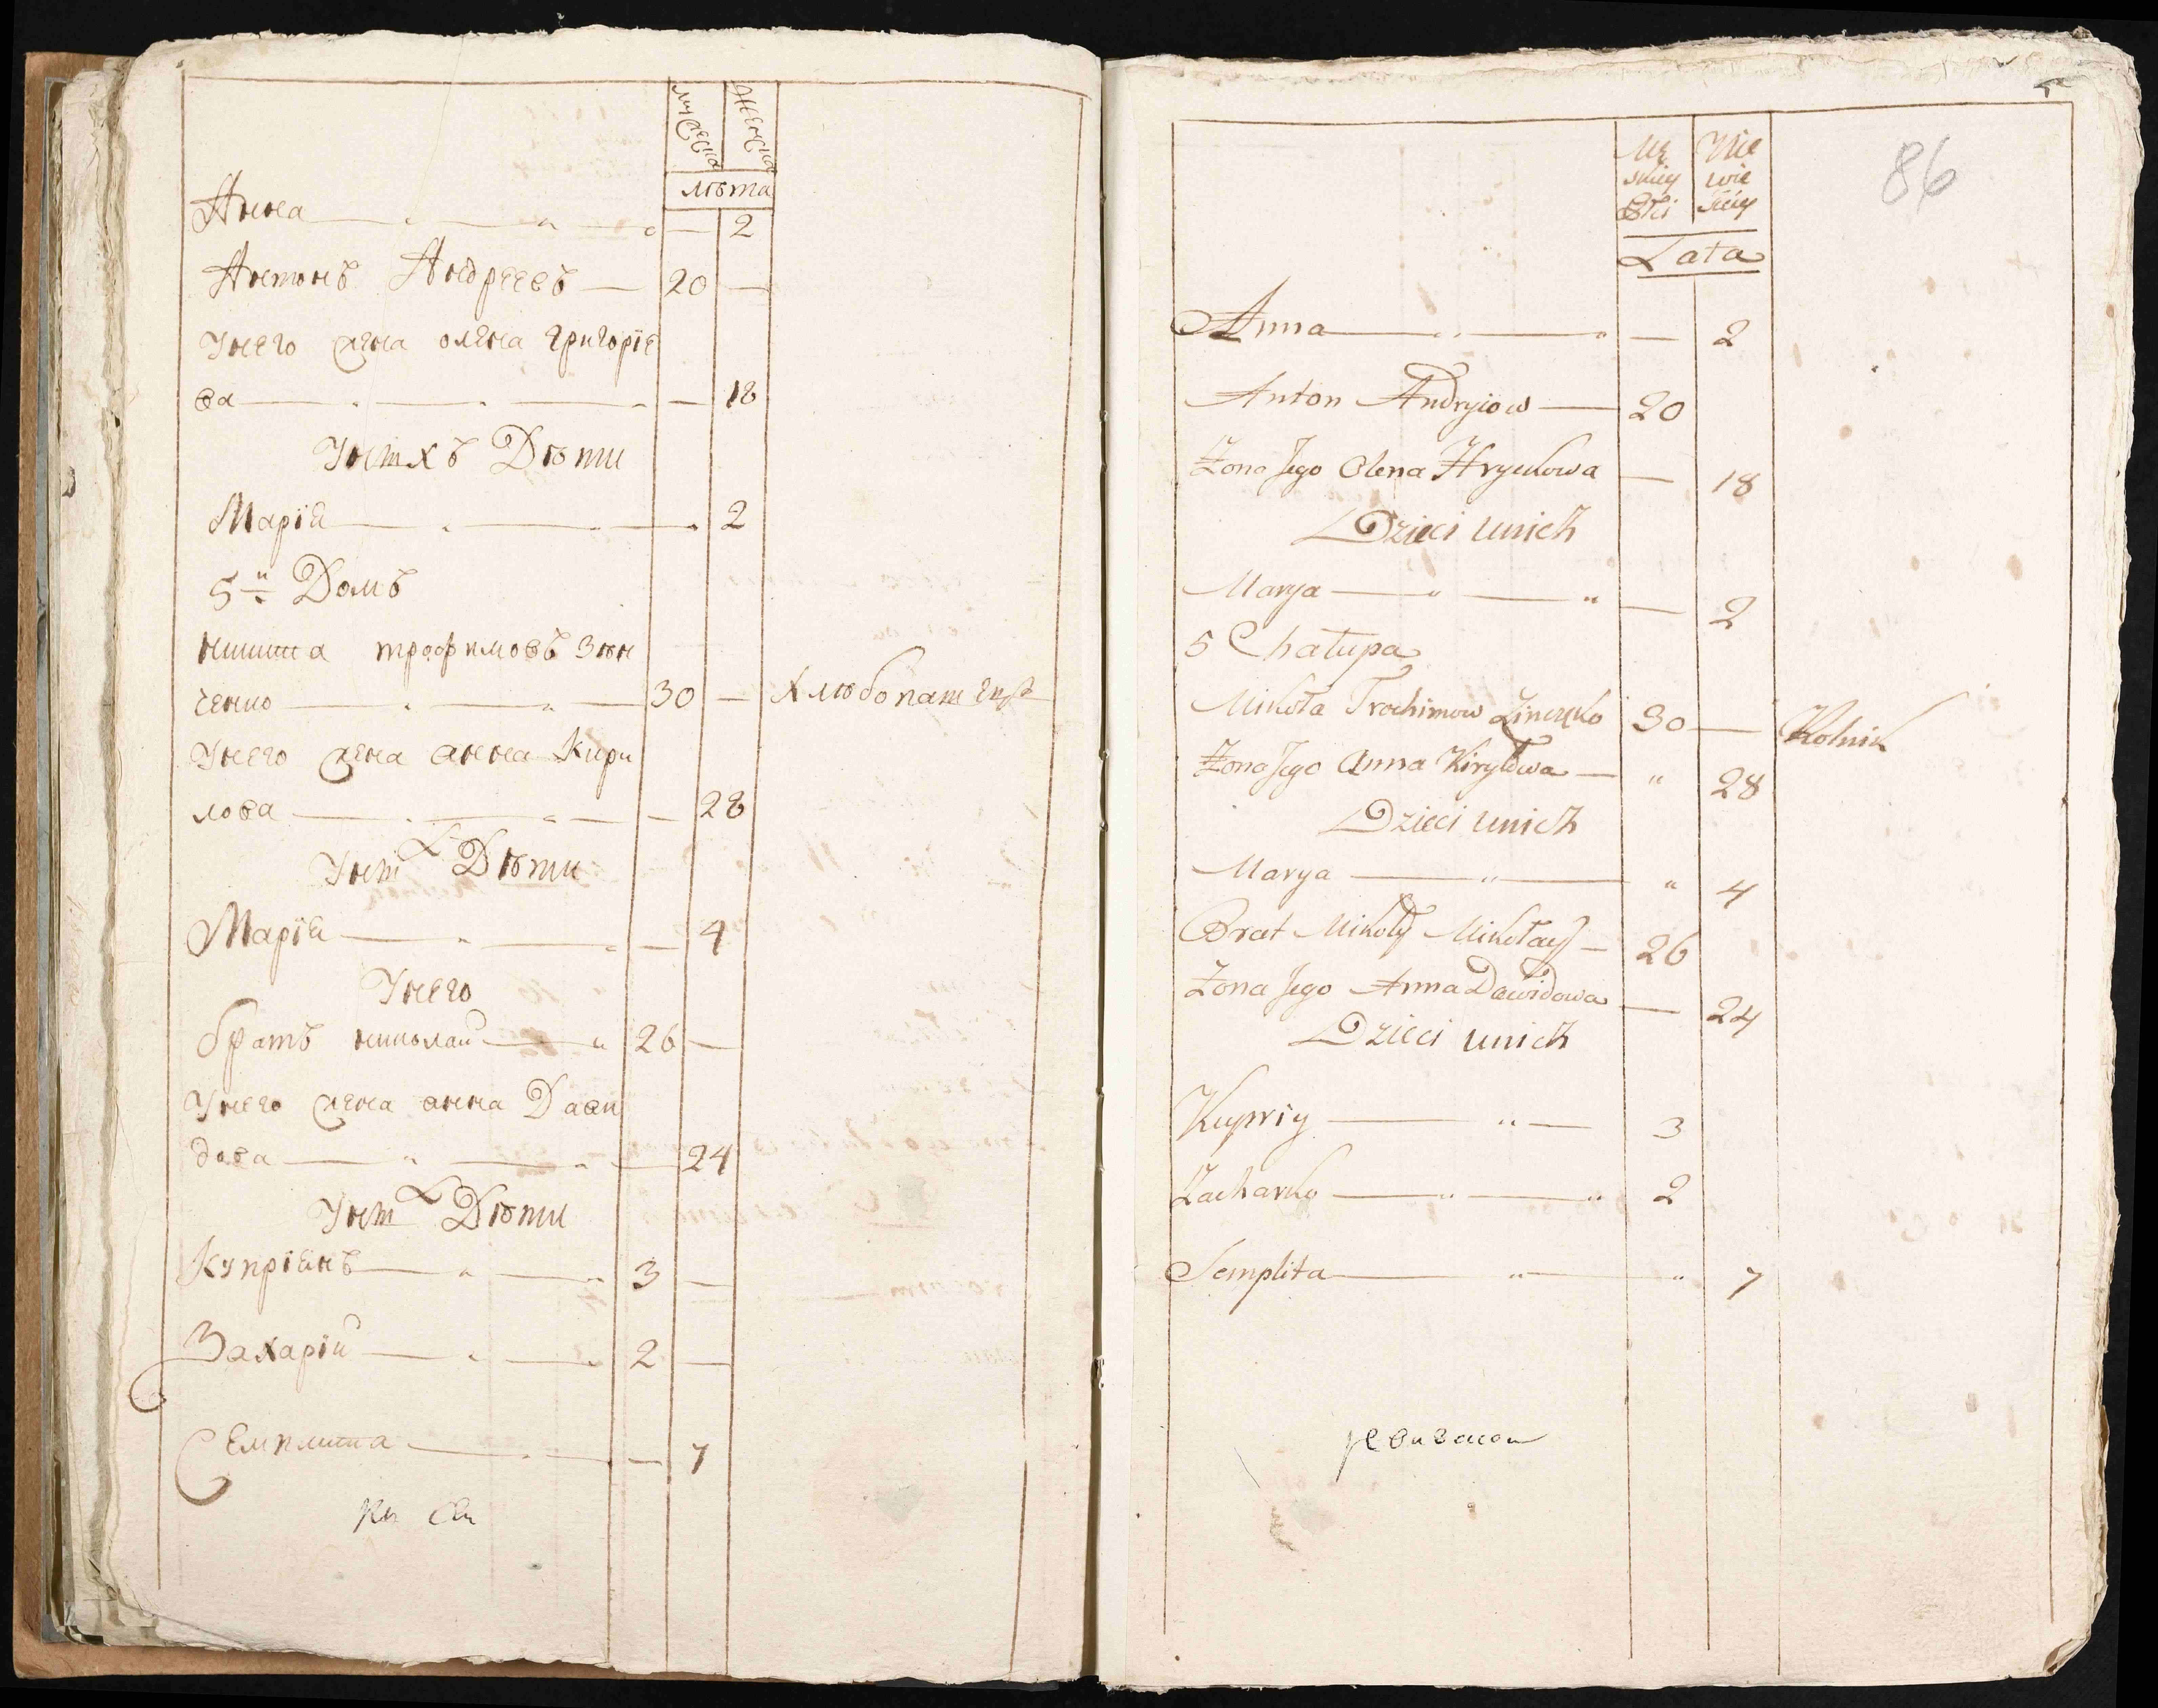 мужеска
женска
лѣта
Анна — — — 2
Антонъ Андреевъ — 20 —
Унего жена олена григорїе
ва — — — — 18
Унихъ Дѣти
Марїя — — — 2
5й Домъ
никита трофимовъ Зѣн
ченко — — — 30 — Хлюбопашецъ
Унего жена анна Кири
лова — — — — 28
Уних Дѣти
Марїя — — — 4
Унего
братъ николай — 26 —
Унего жена анна Дави
дова — — — 24
Уних Дѣти
Купрїянъ — — 3 —
Захарїй — — 2 —
Семплита — — — 7
86
Mę Nie
skiey wie
płci ściey
Lata
Anna — — — 2
Anton Andryiow — 20
Żona Jego Olena Hryckowa — 18
Dzieci unich
Marya — — — 2
5 Chałupa
Mikoła Trochimow Zinczko 30 — Rolnik
Żona Jego Anna Kiryłowa — " 28
Dzieci unich
Marya — " — " 4
Brat Mikoły Mikołay — 26
Żona Jego Anna Dawidowa — 24
Dzieci unich
Kupriy — " — 3
Zacharko — " — " 2
Semplita — " — " 7